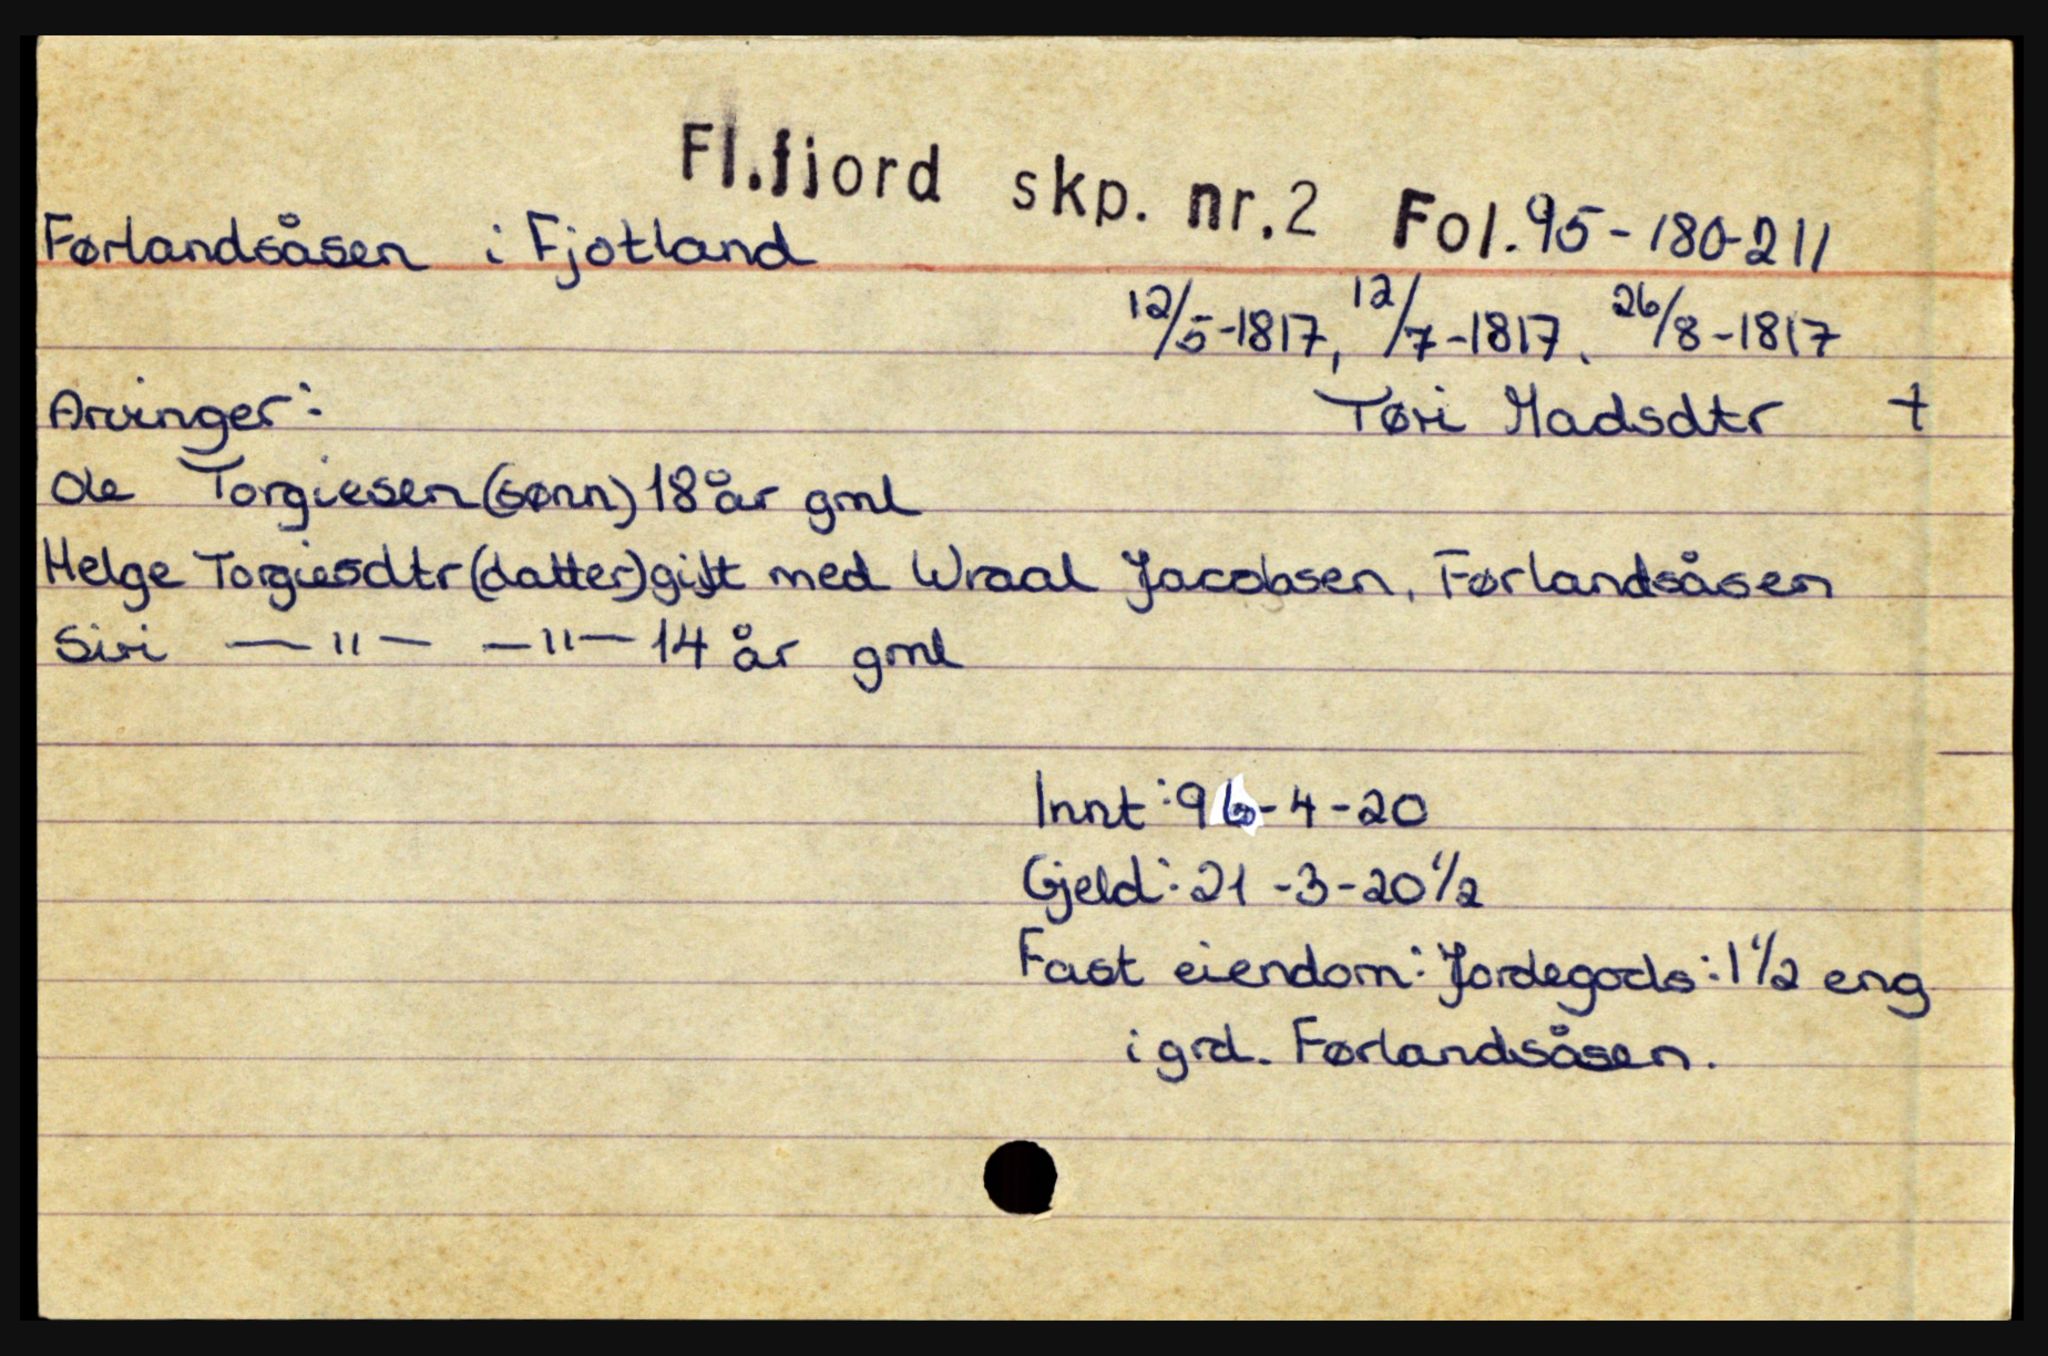 Fl.fjord skp. nr.2 Fol. 95-180-211
Førlandsåsen i Fjotland
12/5-1817, 12/7-1817, 26/8-1817
Arvinger: Tøri Madsdtr +
Ole Torgiesen (sønn) 18 år gml
Helge Torgiesdtr (datter) gift med Wraal Jacobsen, Førlandsåsen
Siri —"— —"— 14 år gml
Innt: 96-4-20
Gjeld: 21-3-20 1/2
Fast eiendom: Jordegods: 1 1/2 eng
i grd. Førlandsåsen.